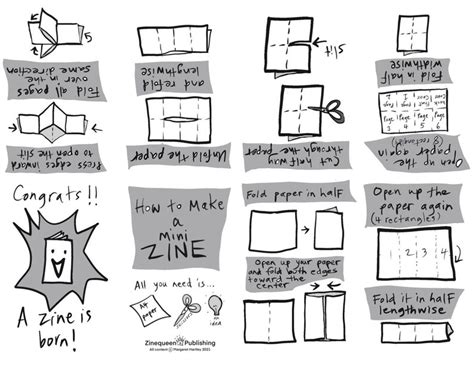 How to Make
a
mini
ZINE
All you need is...
A4
paper
an
idea
Zinequeen Publishing
All content © Margaret Hartley 2021
Fold paper in half
Open up your paper
and fold both edges
toward the
center
Open up the
paper again
(4 rectangles)
1 2 3 4
Fold it in half
lengthwise
Open up the
paper again
(8 rectangles)
Fold in half
widthwise
Cut halfway
through the paper
slit
Unfold the paper
and refold
lengthwise
Press edges inward
to open the slit
Fold all pages
over in the
same direction
Congrats!!
A zine is
born!